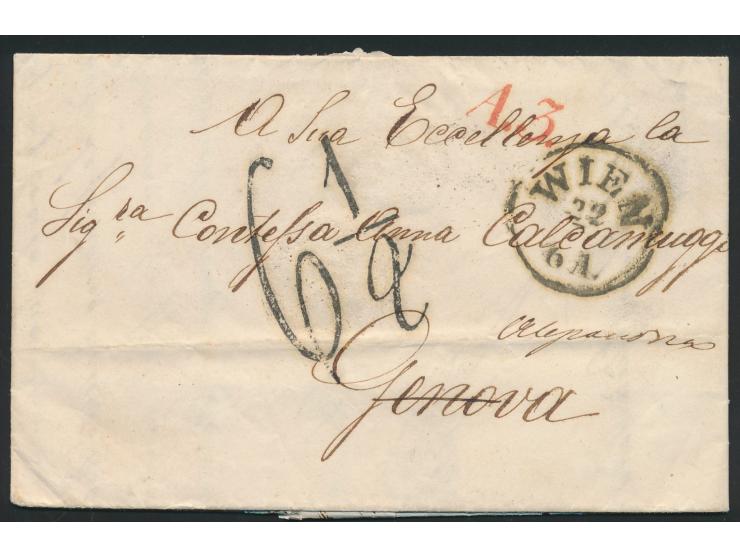 A. 3.
A Sua Eccellenza la
Sig.ra Contessa Anna Calcamuggi
WIEN
22
6 A.
6 1/2
Alexandria
Genova